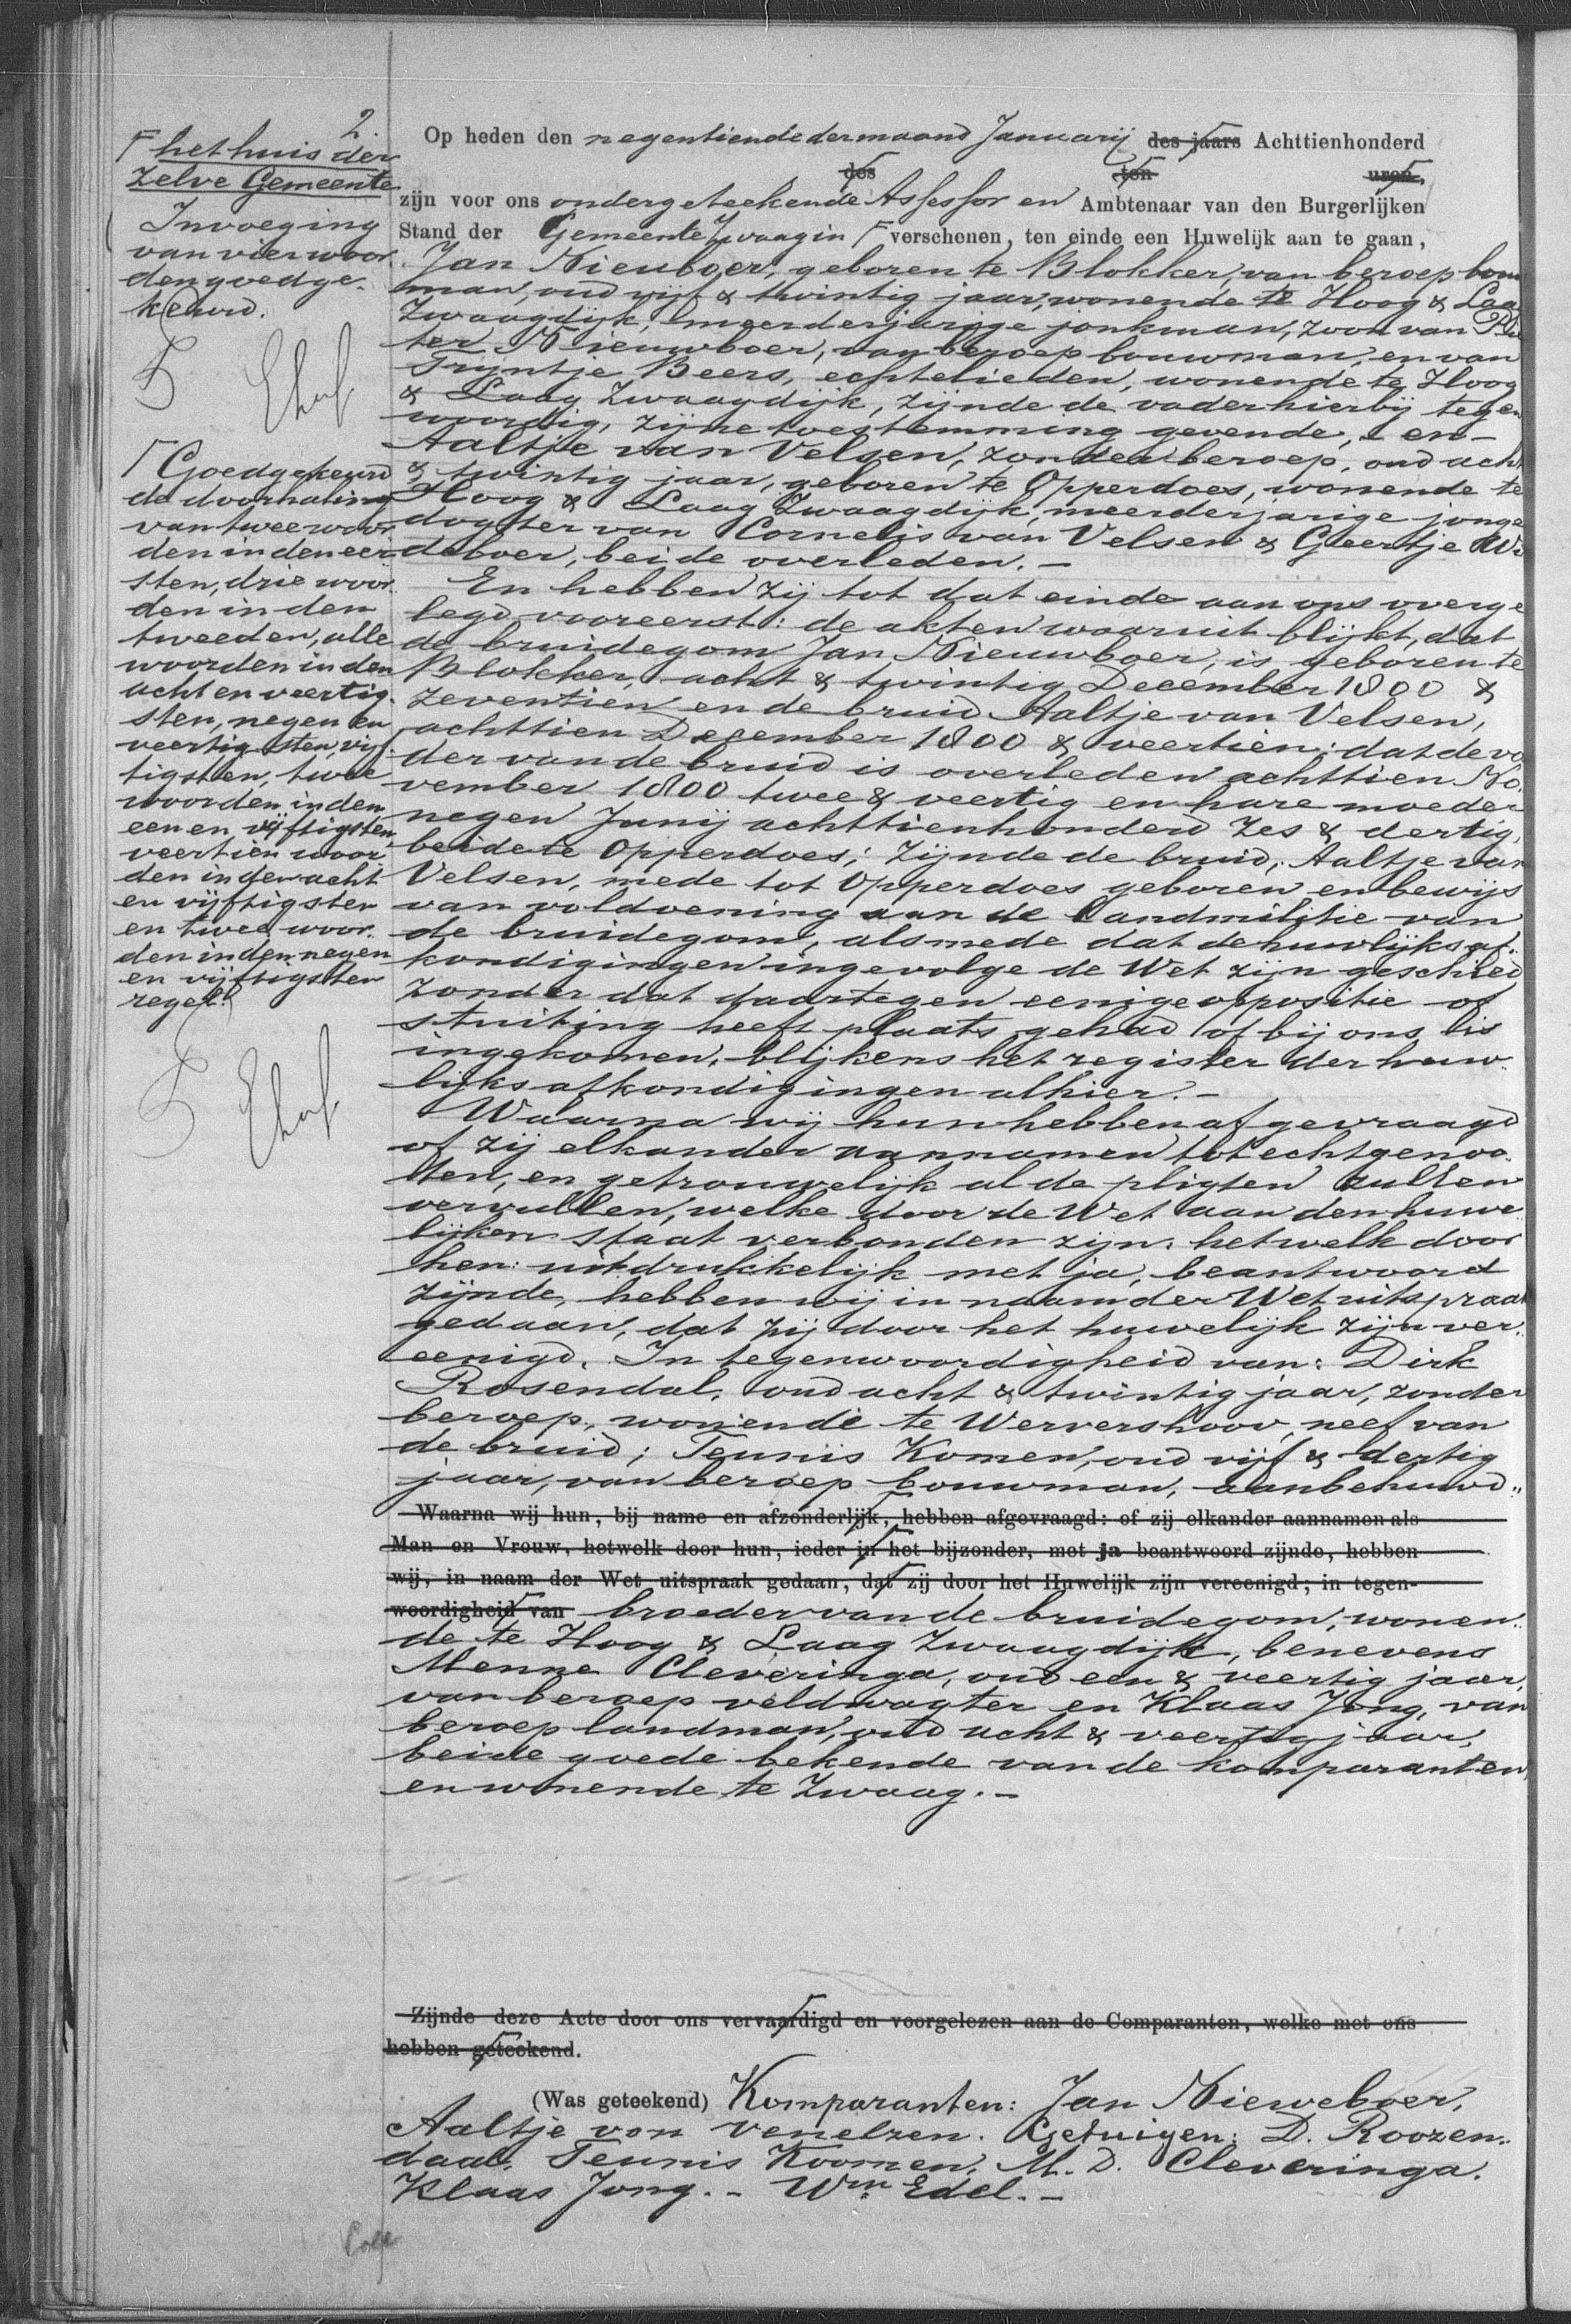 2.
Γ het huis der
zelve Gemeente
Invoeging
van vier woor
den goedge-
keurd.
Γ Goedgekeurd
de doorhaling
van twee woor
den in den eer
sten, drie woor
den in den
tweeden, alle
woorden in den
acht en veertig-
sten, negen en
veertigsten, vijf-
tigsten, twee
woorden in den
een en vijftigsten,
veertien woor
den in den acht
en vijftigsten
en twee woor-
den in den negen
en vijftigsten
regel.
Op heden den negentiende der maand Januarij des jaars Achttienhonderd
des ten uren,
zijn voor ons ondergeteekende Assessor en Ambtenaar van den Burgerlijken
Stand der Gemeente Zwaag in Γ verschenen, ten einde een Huwelijk aan te gaan,
Jan Nieuboer, geboren te Blokker, van beroep bouw
man, oud vijf & twintig jaar, wonende te Hoog & Laag
Zwaagdijk, meerderjarige jonkman, zoon van Pie
ter Nieuwboer, van beroep bouwman, en van
Trijntje Beers, echtelieden, wonende te Hoog
& Laag Zwaagdijk, zijnde de vader hierbij tegen
woordig, zijne toestemming gevende, - en -
Aaltje van Velsen, zonder beroep, oud acht
& twintig jaar, geboren te Opperdoes, wonende te
Hoog & Laag Zwaagdijk, meerderjarige jonge
dogter van Cornelis van Velsen & Geertje
deboer, beide overleden. -
En hebben zij tot dat einde aan ons overge
legd vooreerst: de akten waaruit blijkt, dat
de bruidegom Jan Nieuwboer, is geboren te
Blokker, acht & twintig December 1800 &
zeventien en de bruid Aaltje van Velsen,
achttien December 1800 & veertien; dat de va
der van de bruid is overleden achttien No.
vember 1800 twee & veertig en hare moeder
negen Junij achttienhonderd zes & dertig,
beide te Opperdoes; zijnde de bruid, Aaltje van
Velsen, mede tot Opperdoes geboren en bewijs
van voldoening aan de landmilitie van
de bruidegom, alsmede dat de huwlijks af-
kondigingen ingevolge de Wet zijn geschied
zonder dat daartegen eenige oppositie of
stuiting heeft plaats gehad of bij ons is
ingekomen, blijkens het register der huw-
lijks afkondigingen alhier. -
Waarna wij hun hebben afgevraagd
of zij elkander aannamen tot echtgenoo-
ten, en getrouwelijk al de pligten zullen
vervullen, welke door de Wet aan den huwe
lijken staat verbonden zijn: hetwelk door
hen uitdrukkelijk met ja, beantwoord
zijnde, hebben wij in naam der Wet uitspraak
gedaan, dat zij door het huwelijk zijn ver-
eenigd. In tegenwoordigheid van: Dirk
Rosendal, oud acht & twintig jaar, zonder
beroep, wonende te Wervershoov, neef van
de bruid; Teunis Komen, oud vijf & dertig
jaar, van beroep bouwman, aanbehuwd-
Waarna wij hun, bij name en afzonderlijk, hebben afgevraagd: of zij elkander aannamen als
Man en Vrouw, hetwelk door hun, ieder in het bijzonder, met ja beantwoord zijnde, hebben
wij, in naam der Wet uitspraak gedaan, dat zij door het Huwelijk zijn vereenigd; in tegen-
woordigheid van broeder van de bruidegom, wonen-
de te Hoog & Laag Zwaagdijk, benevens
Menne Cleveringa, oud een & veertig jaar,
van beroep veldwagter en Klaas Jong, van
beroep landman, oud acht & veertig jaar,
beide goede bekende van de komparanten
en wonende te Zwaag. -
Zijnde deze Acte door ons vervaardigd en voorgelezen aan de Comparanten, welke met ons
hebben geteekend.
(Was geteekend) Komparanten: Jan Nieweboer,
Aaltje von venelzen. Getuigen: D. Roozen-
daal. Teunis Koomen, M. D. Cleveringa.
Klaas Jong. - Wm Edel. -